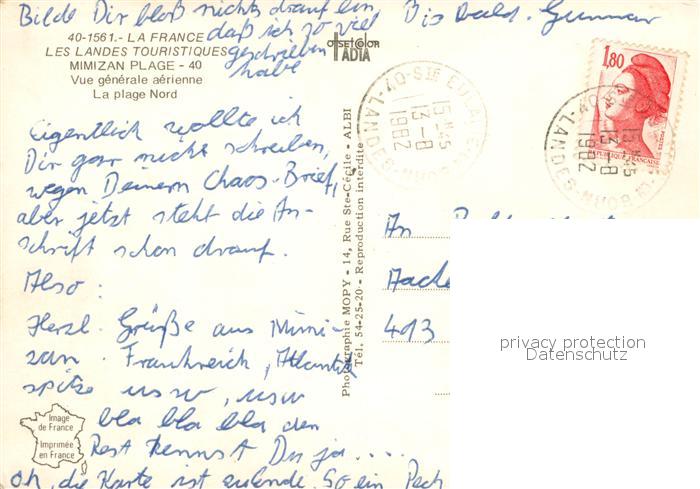 Bilde Dir bloß nichts drauf ein,
daß ich so viel
geschrieben
habe
Bis bald. Gunnar
40-1561.- LA FRANCE
LES LANDES TOURISTIQUES
MIMIZAN PLAGE - 40
Vue générale aérienne
La plage Nord
OFFSET COLOR
IADIA
Eigentlich wollte ich
Dir gar nicht schreiben,
wegen Deinem Chaos-Brief,
aber jetzt steht die An-
schrift schon drauf.
Also:
Herzl. Grüße aus Mimi-
zan. Frankreich, Atlantik
spitze usw, usw
bla bla bla den
Rest kennst Du ja ....
Oh, die Karte ist zuende. So ein Pech
Image
de France
Imprimée
en France
Photographie MOPY - 14, Rue Ste-Cécile - ALBI
Tél. 54-25-20 - Reproduction interdite
40-STE EULALIE
LANDES
15H45
13-8
1982
1,80
REPUBLIQUE FRANÇAISE
40
LANDES
15H45
13-8
1982
An
Aache
413
privacy protection
Datenschutz